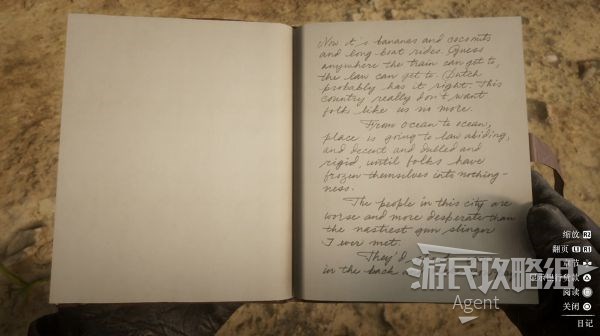 Now it's bananas and coconuts
and long boat rides. Guess
anywhere the train can get to,
the law can get to. Dutch
probably has it right. This
country really don't want
folk like us no more.
From ocean to ocean,
place is going to law abiding,
and decent and dulled and
rigid, until folks have
frozen themselves into nothing-
ness.
The people in this city are
worse and more desperate than
the nastiest gun slinger
I ever met.
They'd
in the back
游民攻略组
Agent
缩放 R2
翻页 L1 R1
阅读
关闭
日记